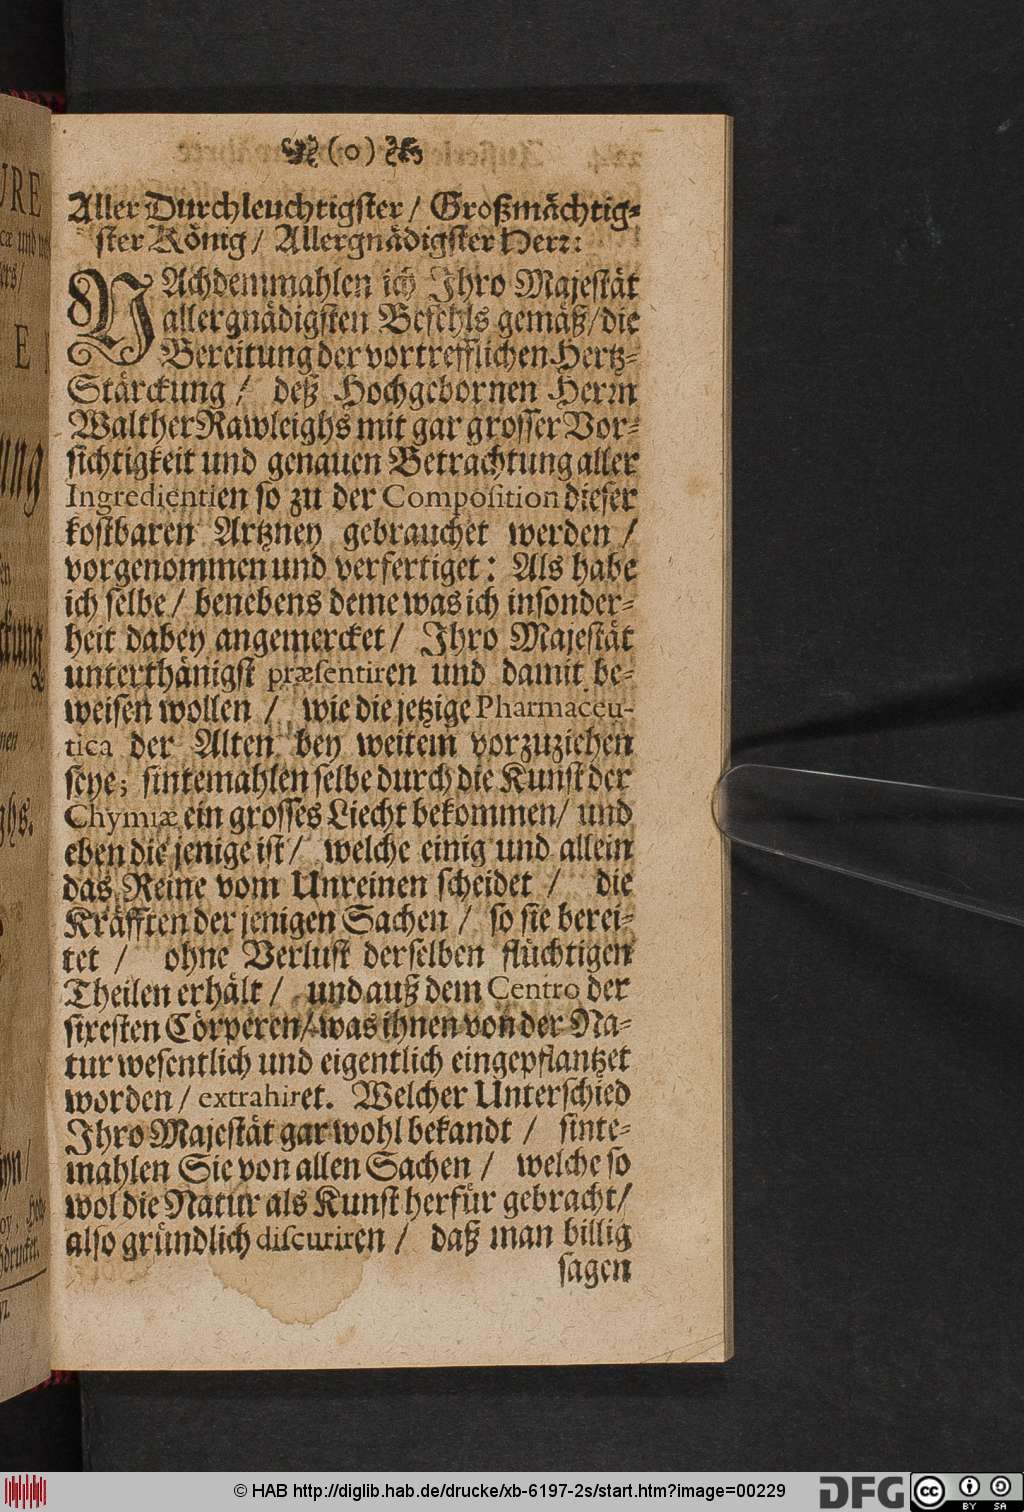 (o)
Aller Durchleuchtigster / Großmächtig-
ster König / Allergnädigster Herr:
NAchdemmahlen ich Ihro Majestät
allergnädigsten Befehls gemäß / die
Bereitung der vortrefflichen Hertz-
Stärckung / deß Hochgebornen Herrn
Walther Rawleighs mit gar grosser Vor-
sichtigkeit und genauen Betrachtung aller
Ingredientien so zu der Composition dieser
kostbaren Artzney gebrauchet werden /
vorgenommen und verfertiget: Als habe
ich selbe / benebens deme was ich insonder-
heit dabey angemercket / Ihro Majestät
unterthänigst præsentiren und damit be-
weisen wollen / wie die jetzige Pharmaceu-
tica der Alten bey weitem vorzuziehen
seye; sintemahlen selbe durch die Kunst der
Chymiæ ein grosses Liecht bekommen / und
eben die jenige ist / welche einig und allein
das Reine vom Unreinen scheidet / die
Kräfften der jenigen Sachen / so sie berei-
tet / ohne Verlust derselben flüchtigen
Theilen erhält / und auß dem Centro der
fixesten Cörperen / was ihnen von der Na-
tur wesentlich und eigentlich eingepflantzet
worden / extrahiret. Welcher Unterschied
Ihro Majestät gar wohl bekandt / sinte-
mahlen Sie von allen Sachen / welche so
wol die Natur als Kunst herfür gebracht /
also gründlich discuriren / daß man billig
sagen
© HAB http://diglib.hab.de/drucke/xb-6197-2s/start.htm?image=00229
DFG
cc
BY SA